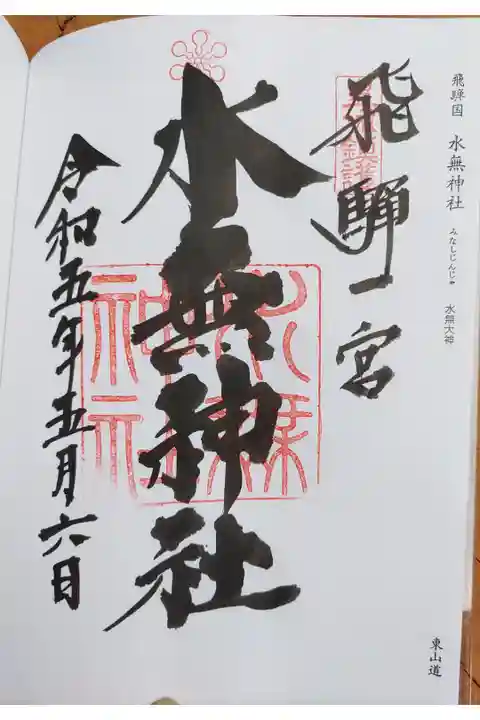 飛騨国 水無神社 みなしじんじゃ 水無大神
東山道
飛騨一宮
水無神社
令和五年五月六日